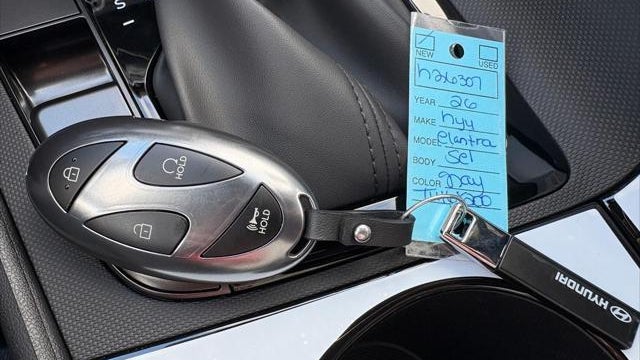 S
NEW USED
h26307
YEAR 26
MAKE hyu
MODEL elantra
BODY Sel
COLOR gray
HOLD
HOLD
HYUNDAI